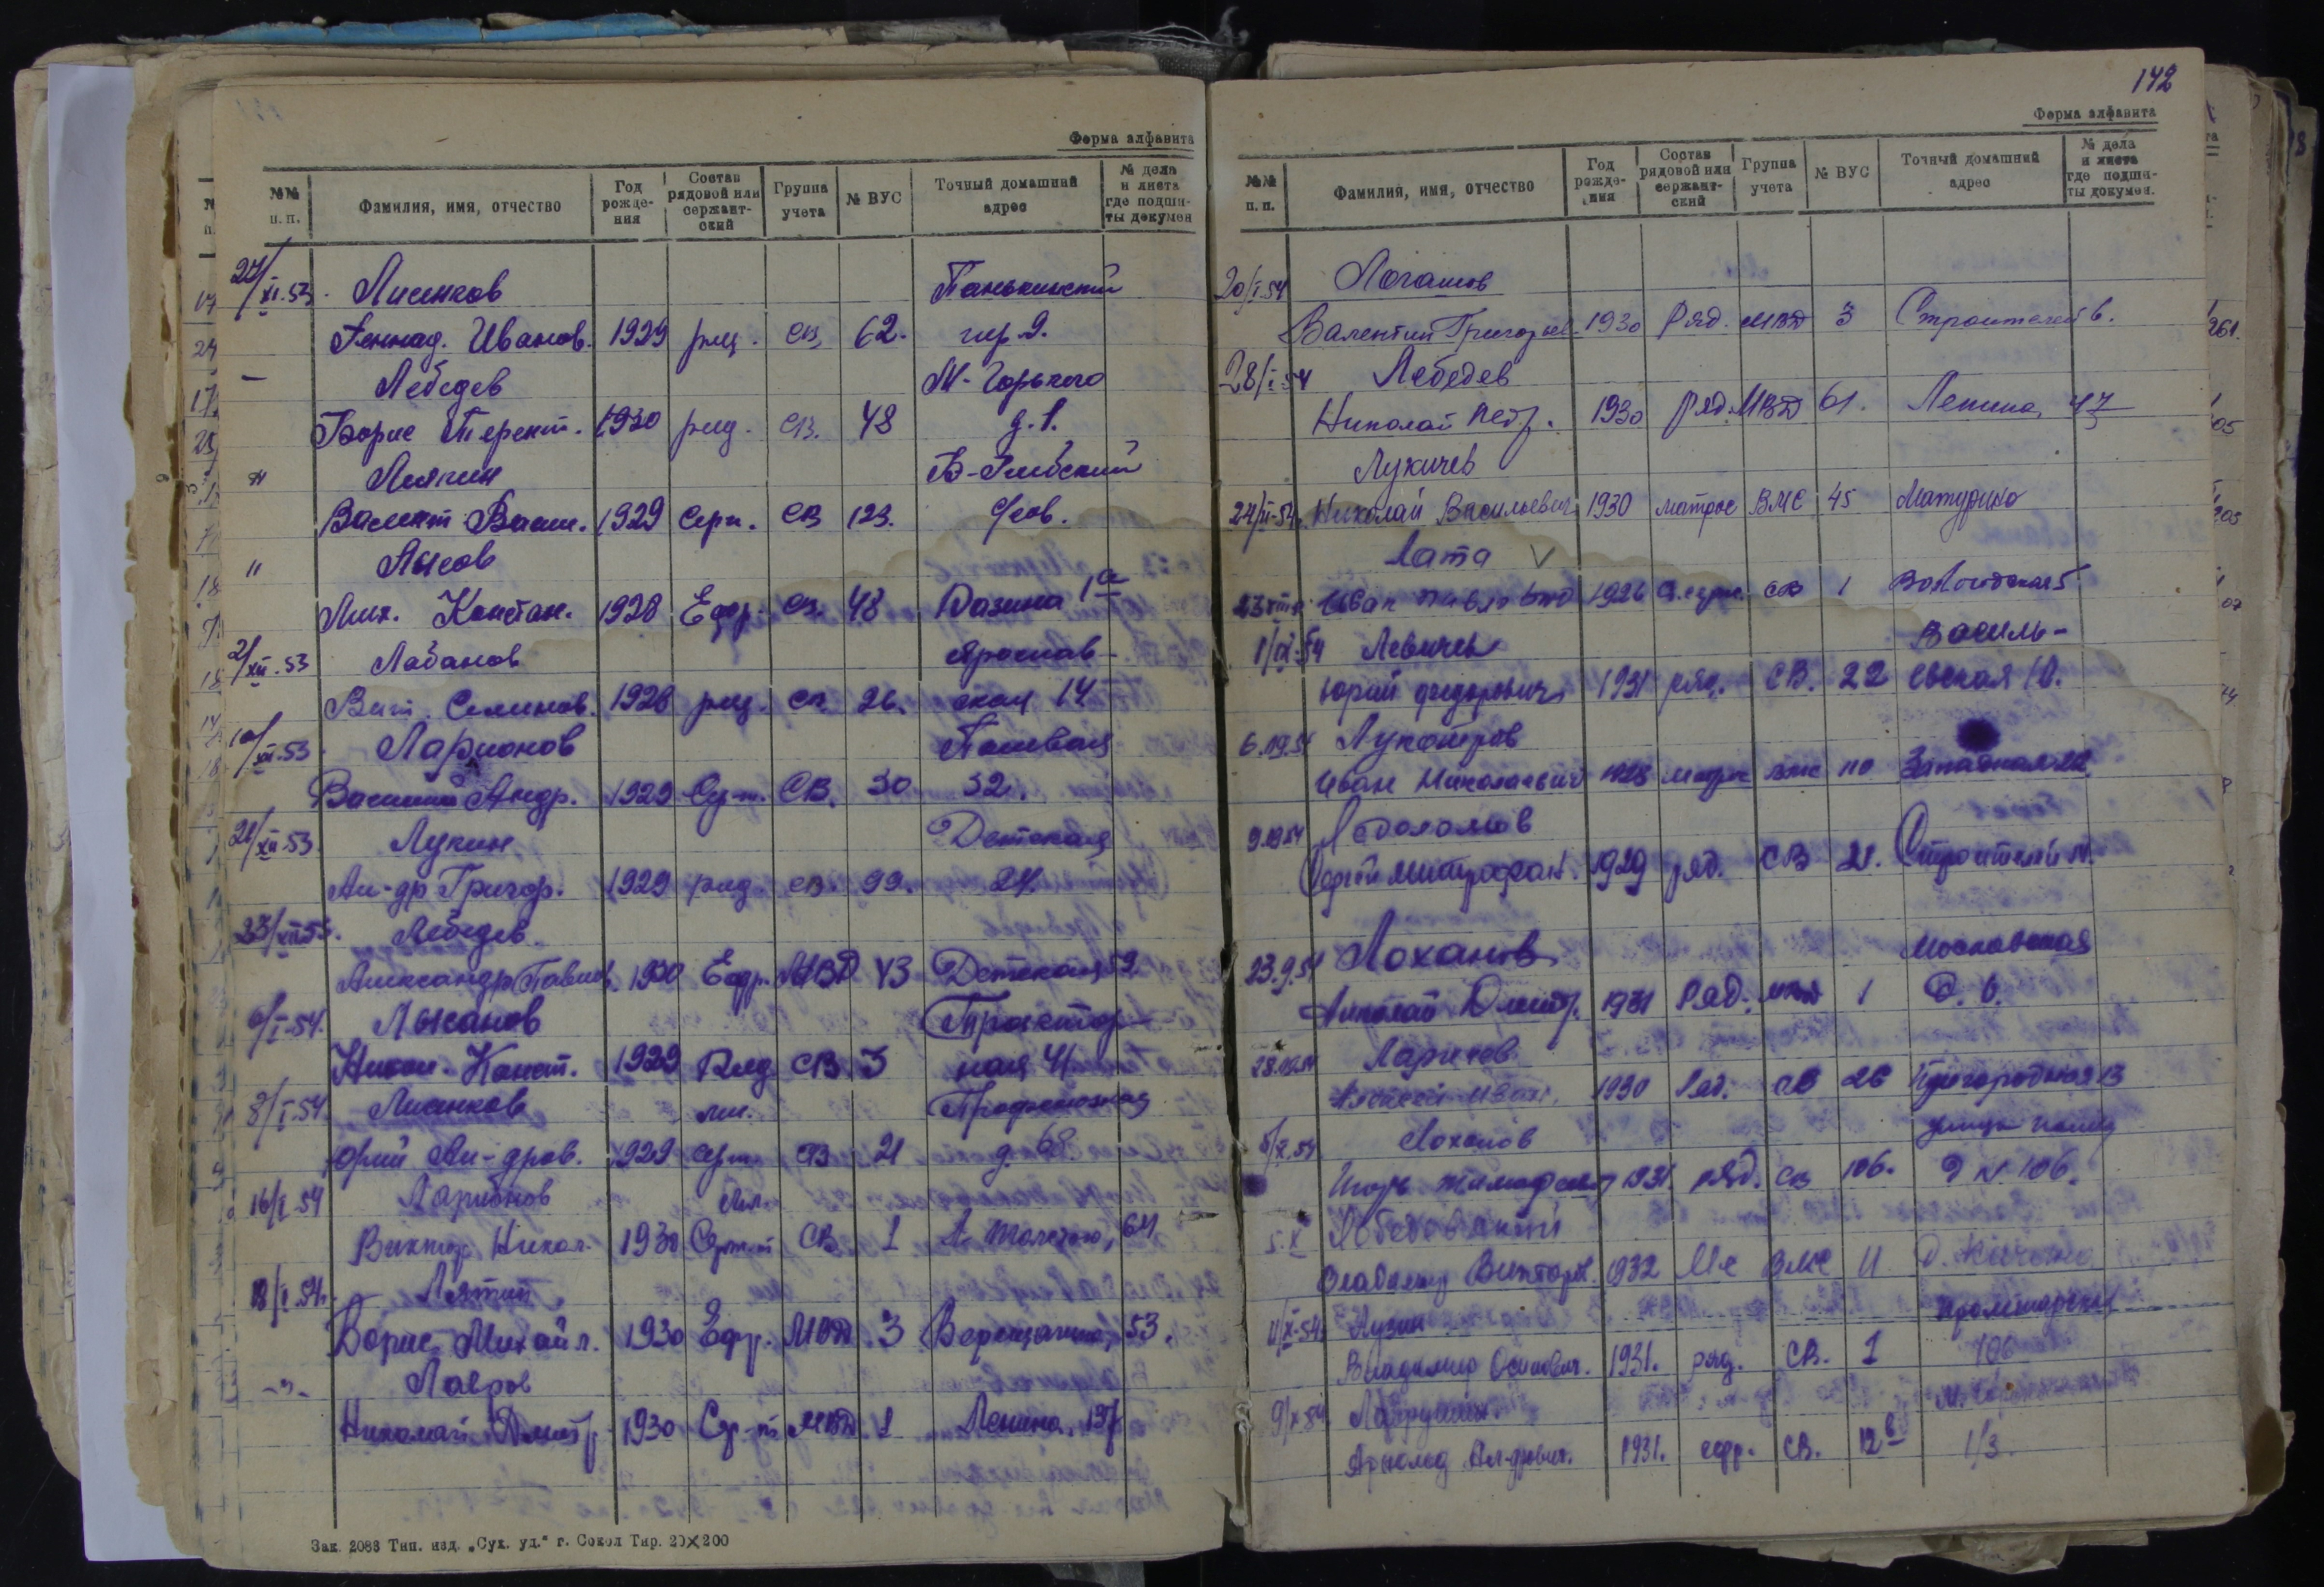 Форма алфавита
№№ п.п. Фамилия, имя, отчество Год рождения Состав рядовой или сержантский Группа учета № ВУС Точный домашний адрес № дела и листа где подшиты докумен
27/XI.53. Лисенков Панькинский
Геннад. Иванов. 1929 ряд. СВ 62. пер 9.
— Лебедев М-Горького
Борис Терент. 1930 ряд. СВ. 48 д. 1.
" Ляпин
Валент. Васил. 1929 Серж. СВ 123.
" Лысов
Мих. Констан. 1928 Ефр. СВ. 48 Разина 1а
2/XII.53 Лабанов Ярослав-
Вит. Семенов. 1928 ряд. СВ. 26. ская 14
10/XII.53 Ларионов
Василий Андр. 1929 СВ. 30 32.
21/XII.53 Лукин Детская
Ал-др Григор. 1929 ряд. СВ. 99. 24.
23/XII.53. Лебедев
Александр Павлов. 1930 Ефр. МВД 43 Детская 59.
6/I.54. Лысанов Трактор-
Никол. Конст. 1929 Ряд СВ 3 ная 41
8/I.54. Лисенков мл. Профсоюзная
Юрий Ал-дров. 1929 серж. СВ 21 д. 68
16/I.54 Ларионов мл.
Виктор Никол. 1930 Серж-т СВ 1 А. Толстого, 64
18/I.54. Лятин
Борис Михайл. 1930 Ефр. МВД. 3 Верещагина, 53.
-"- Лавров
Николай Дмитр. 1930 Сер-т МВД. 1 Ленина, 137
Зак. 2088 Тип. изд. „Сух. уд.“ г. Сокол Тир. 20×200
142
Форма алфавита
№№ п.п. Фамилия, имя, отчество Год рождения Состав рядовой или сержантский Группа учета № ВУС Точный домашний адрес № дела и листа где подшиты докумен.
20/I.54 Логашов
Валентин Григорьев. 1930 Ряд. МВД 3 Строителей 6.
28/I.54 Лебедев
Николай Петр. 1930 Ряд. МВД 61. Ленина, 47
Лукичев
24/II-54. Николай Васильевич 1930 матрос ВМС 45 Матурино
Лата V
Иван Павлович 1926 СВ 1 Вологодская 5
1/IX-54 Левичев Василь-
Юрий Федорович 1931 ряд. СВ. 22 евская 10.
6.09.54
Иван Николаевич 1928 ВМС 110 Западная 22.
9.09.54
Сергей Митрофан. 1929 ряд. СВ 21. Строителей
23.9.54 Лоханов Московская
Николай Дмитр. 1931 Ряд. МВД 1
28.09.54 Ларичев
Алексей Иван. 1930 Ряд. СВ 26 Пригородная 13
5/X.54 Лоханов
Игорь Тимофеев 1931 ряд. СВ 106. д N. 106.
5.X Лебедовский
Владимир Викторов. 1932 ВМС 11
11/X-54. Лузин Пролетарская
Владимир Осипович. 1931. ряд. СВ. 1 106
9/X.54.
Арнольд Ал-дрович. 1931. ефр. СВ. 12в 1/3.